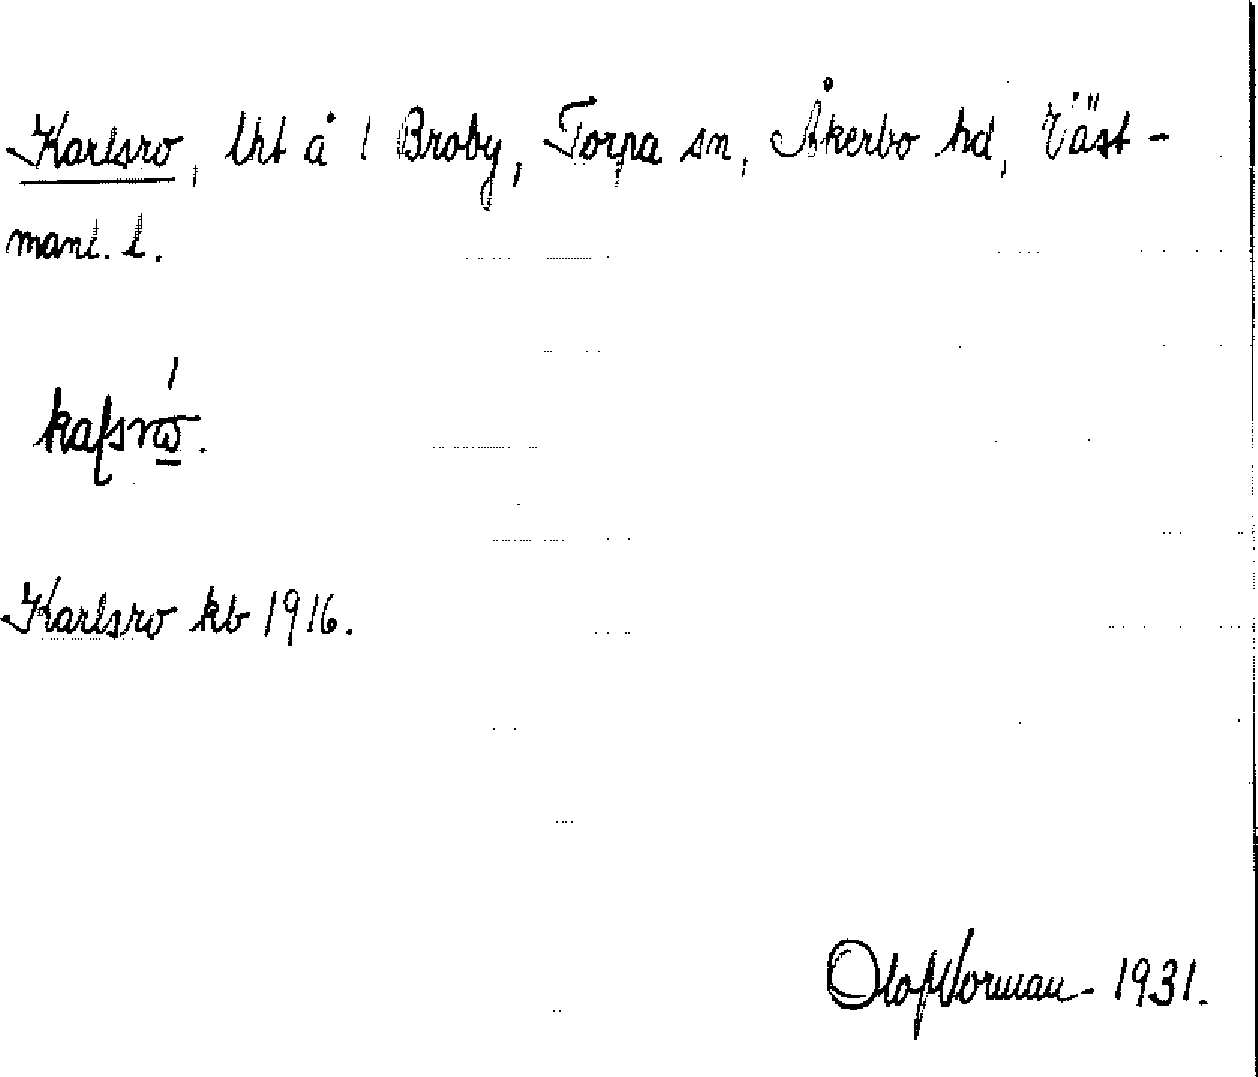 Karlsro, lht å 1 Broby, Torpa sn, Åkerbo hd, Väst-
manl. l.
Karlsro kb 1916.
Olof Norman - 1931.